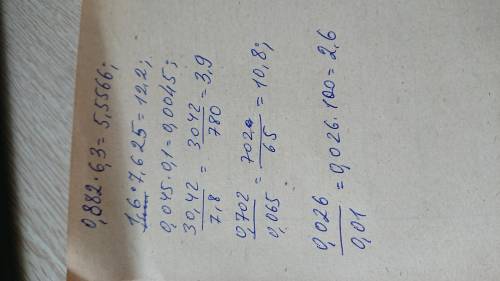 0,882·6,3=5,5566;
1,6·7,625=12,2;
0,045·0,1=0,0045;
30,42/7,8 = 3042/780 = 3,9
0,702/0,065 = 702/65 = 10,8;
0,026/0,01 = 0,026·100=2,6